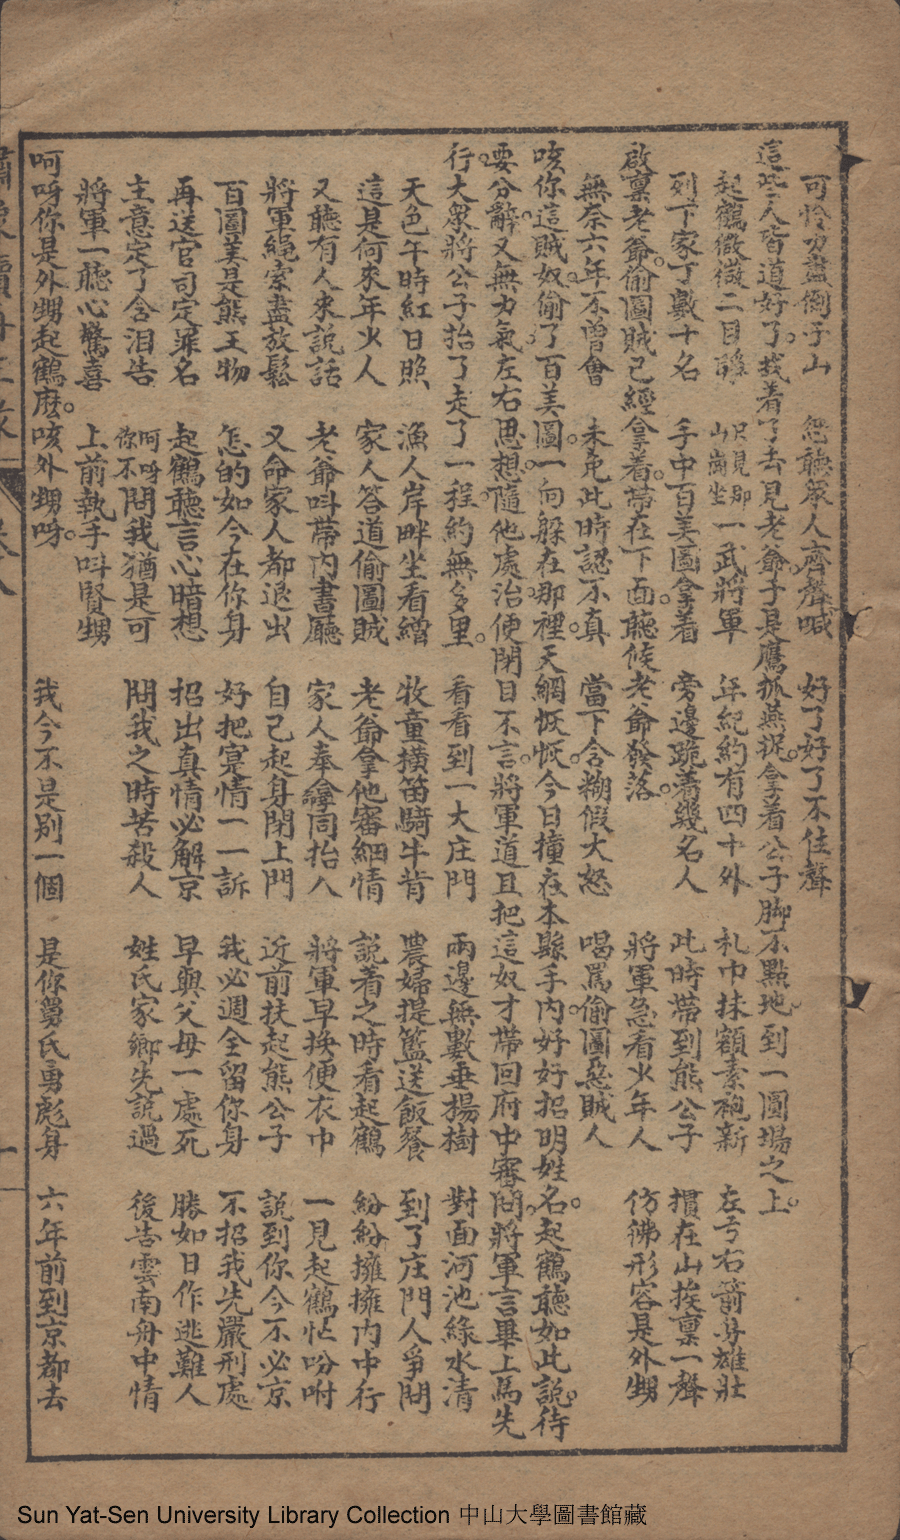 可怜力盡倒于山　忽聽衆人齊聲喊　好了好了不住聲
這些人皆道好了。找着了去見老爺。于是鷹抓燕捉。拿着公子脚不點地。到一圍場之上。
起鶴微微二目睜　只見那山崗坐一武將軍　年紀約有四十外　札巾抹額素袍新　左弓右箭身雄壯
列下家丁數十名　手中百美圖拿着　旁邊跪着幾名人　此時帶到熊公子　摜在山挨稟一聲
啟稟老爺。偷圖賊已經拿着。帶在下面。聽候老爺發落。　將軍急看少年人　仿彿形容是外甥
無奈六年不曾會　未免此時認不真　當下含糊假大怒　喝罵偷圖惡賊人
咳你這賊奴。偷了百美圖。一向躲在那裡。天網恢恢。今日撞在本縣手內。好好招明姓名。起鶴聽如此說。待
要分辭。又無力氣。左右思想。隨他處治。便閉目不言。將軍道且把這奴才帶回府中審問。將軍言畢上馬先
行。大衆將公子抬了走了一程。約無多里。　看看到一大庄門　兩邊無數垂楊樹　對面河池綠水清
天色午時紅日照　漁人岸畔坐看繒　牧童橫笛騎牛背　農婦提籃送飯餐　到了庄門人爭問
這是何來年少人　家人答道偷圖賊　老爺拿他審細情　說着之時看起鶴　紛紛擁擁內中行
又聽有人來說話　老爺叫帶內書廳　家人奉命同抬入　將軍早換便衣巾　一見起鶴忙吩咐
將軍繩索盡放鬆　又命家人都退出　自己起身閉上門　近前扶起熊公子　說到你今不必京
百圖美是熊王物　怎的如今在你身　好把寔情一一訴　我必週全留你身　不招我先嚴刑處
再送官司定罪名　起鶴聽言心暗想　招出真情必解京　早與父母一處死　勝如日作逃難人
主意定了含泪告　呵呀你不問我猶是可　問我之時苦殺人　姓氏家鄉先說過　後告雲南舟中情
將軍一聽心驚喜　上前執手叫賢甥
呵呀你是外甥起鶴麽。咳外甥呀。　我今不是別一個　是你舅氏勇彪身　六年前到京都去
Sun Yat-Sen University Library Collection 中山大學圖書館藏